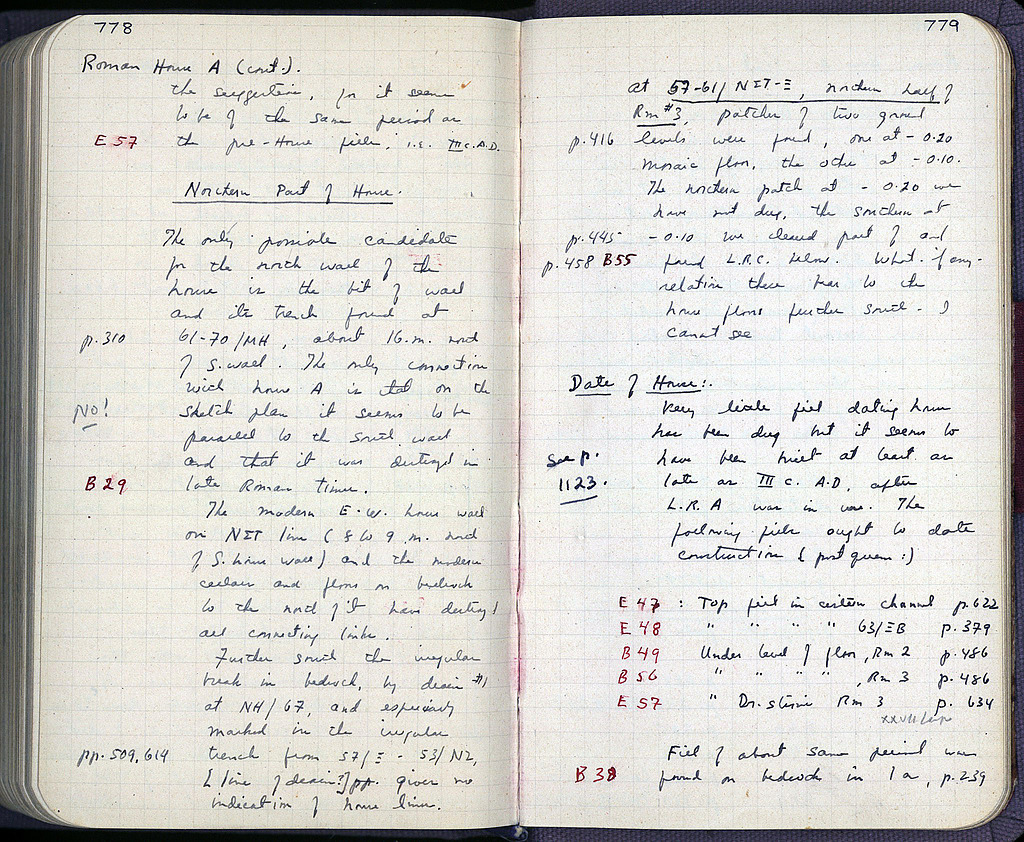 778
Roman House A (cont.).
the suggestion, for it seems
to be of the same period as
E 57 the pre-House fills, i.e. III c. A.D.
Northern Part of House.
The only possible candidate
for the north wall of the
house is the bit of wall
and its trench found at
p.310 61-70/MH, about 16.m. north
of S. wall. The only connection
with house A is that on the
NO! sketch plan it seems to be
parallel to the south wall
and that it was destroyed in
B29 late Roman times.
The modern E-W. house wall
on NIT line (8 to 9 m. north
of S. house wall) and the modern
cellars and floors on bedrock
to the north of it have destroyed
all connecting links.
Further south the irregular
break in bedrock, by drain #1
at NH/67, and especially
marked in the irregular
pp.509,614 trench from 57/Ξ - 53/NZ,
[line of drain?] pp. gives no
indication of house lines.
779
at 57-61/NIT-Ξ, northern half of
Rm #3, patches of two ground
p.416 levels were found, one at - 0.20
mosaic floor, the other at - 0.10.
The northern patch at - 0.20 we
have not dug, the southern at
p.445 - 0.10 we cleared part of and
p.458 B55 found L.R.C. below. What if any
relation these bear to the
house floors further south - I
cannot see
Date of House:.
Very little fill dating house
has been dug but it seems to
see p. have been built at least as
1123. late as III c. A.D, after
L.R. A was in use. The
following fills ought to date
construction (post quem:)
E 47 : Top fill in cistern channel p.622
E 48 " " " " 63/ΞB p.379
B 49 Under level of floor, Rm 2 p.486
B 56 " " " " , Rm 3 p.486
E 57 " Dr. Rm 3 p. 634
Fill of about same period was
B 38 found on bedrock in 1a, p.239